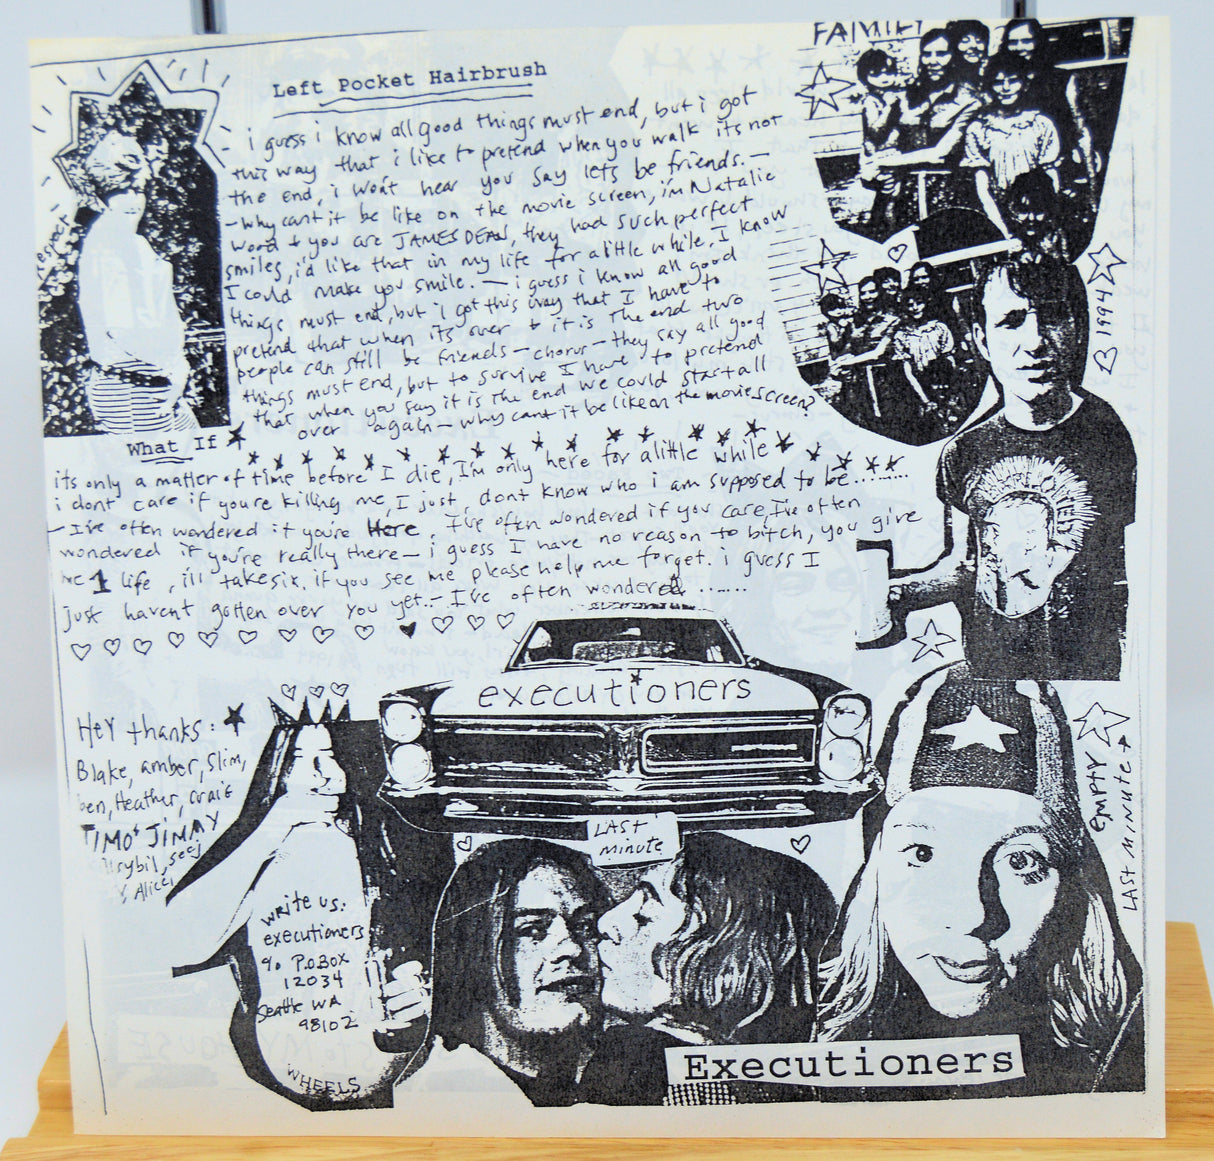 FAMILY
Left Pocket Hairbrush
- i guess i know all good things must end, but i got
this way that i like to pretend when you walk its not
the end, i won't hear you say lets be friends. —
- why cant it be like on the movie screen, i'm Natalie
Wood + you are JAMES DEAN, they had such perfect
smiles, i'd like that in my life for a little while, I know
I could make you smile. — i guess i know all good
things must end, but i got this way that I have to
pretend that when its over + it is the end two
people can still be friends — chorus — they say all good
things must end, but to survive I have to pretend
that when you say it is the end we could start all
over again — why cant it be like on the movie screen?
respect
1994
What If
its only a matter of time before I die, I'm only here for a little while
i dont care if you're killing me, I just, dont know who i am supposed to be.........
- I've often wondered if you're Here, I've often wondered if you care, I've often
wondered if you're really there — i guess I have no reason to bitch, you give
me 1 life, i'll take six. if you see me please help me forget. i guess I
just havent gotten over you yet.. - I've often wondered ......
executioners
Hey thanks:
Blake, amber, Slim,
ben, Heather, craig
TIMO + JIMMY
seej
& Alicci
LAST
minute
EMPTY
LAST MINUTE →
write us:
executioners
c/o P.O.BOX
12034
Seattle WA
98102
WHEELS
Executioners